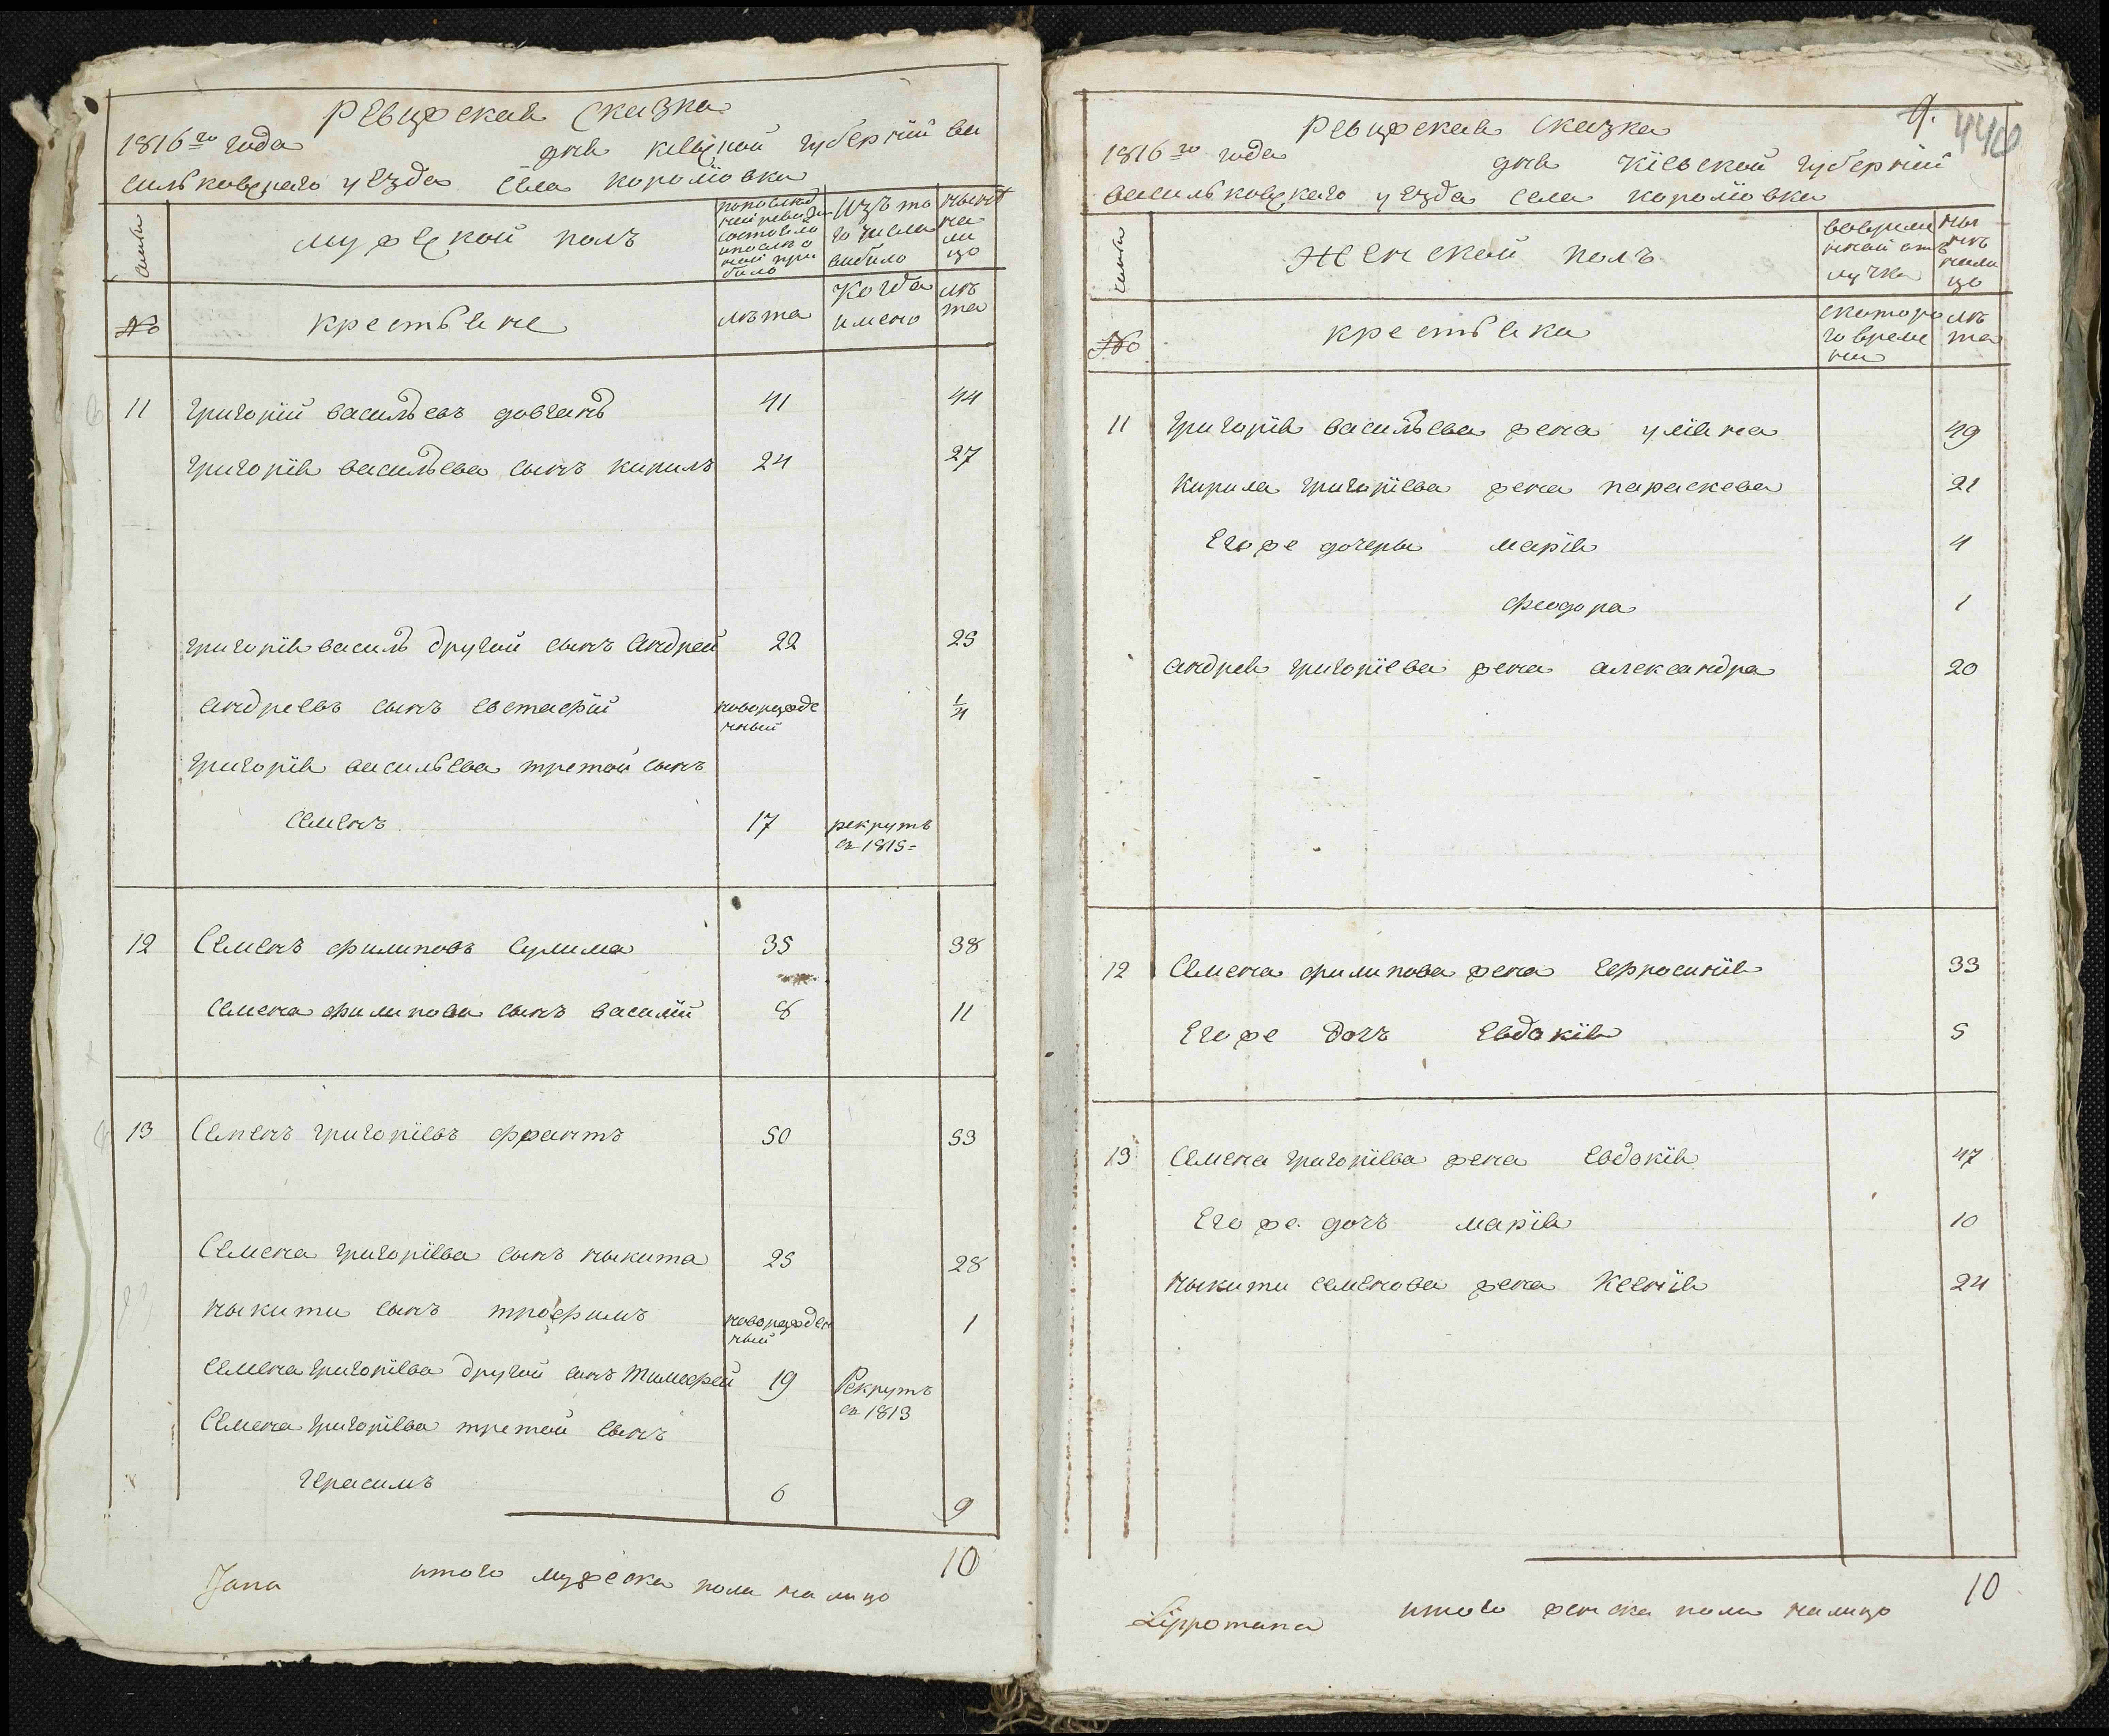 Ревизская Сказка
1816го года дня киевской губернии ва
сильковского уезда села королювки
семьи
мужеской полъ
по последней ревизии состояло и после оной прибыло
Изъ того числа выбыло
ныне на лицо
№
крестьяне
лета
Когда имено
лета
11 григорий васильевъ довгань 41 44
григорія васильева сынъ кирилъ 24 27
григорія василь другой сынъ Андрей 22 25
андреевъ сынъ евстафій новорожденный 1/4
григорія васильева третой сынъ
Семенъ 17 рекрутъ въ 1815=
12 Семенъ филиповъ Сулима 35 38
Семена филипова сынъ василій 8 11
13 Семенъ григоріевъ 50 53
Семена григоріева сынъ ныкита 25 28
ныкиты сынъ трофимъ новорожденный 1
Семена григоріева другой сынъ Тимофей 19 Рекрутъ въ 1813
Семена григоріева третой Сынъ
Герасимъ 6 9
итого мужеска пола на лицо 10
Jana
9.
440
Ревизская Сказка
1816го года дня Кіевской губерніи
васильковского уезда села королювки
семьи
Женской полъ
во временной отлучке
ныне налицо
№
крестьянка
с которого времени
лета
11 григорія васильева жена уліяна 49
Кирила григоріева жена параскева 21
Его же дочеры марія 4
феодора 1
андрея григоріева жена александра 20
12 Семена филипова жена Ефросинія 33
Его же дочъ Евдокія 5
13 Семена григоріева жена Евдокія 47
Его же дочъ марія 10
ныкиты семенова жена Ксенія 24
итого женска пола налицо 10
Lippomana